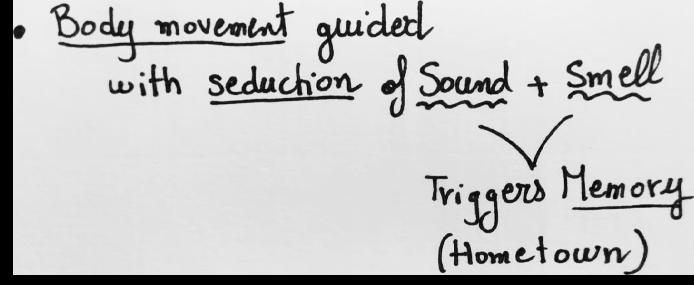 • Body movement guided
with seduction of Sound + Smell
Triggers Memory
(Hometown)